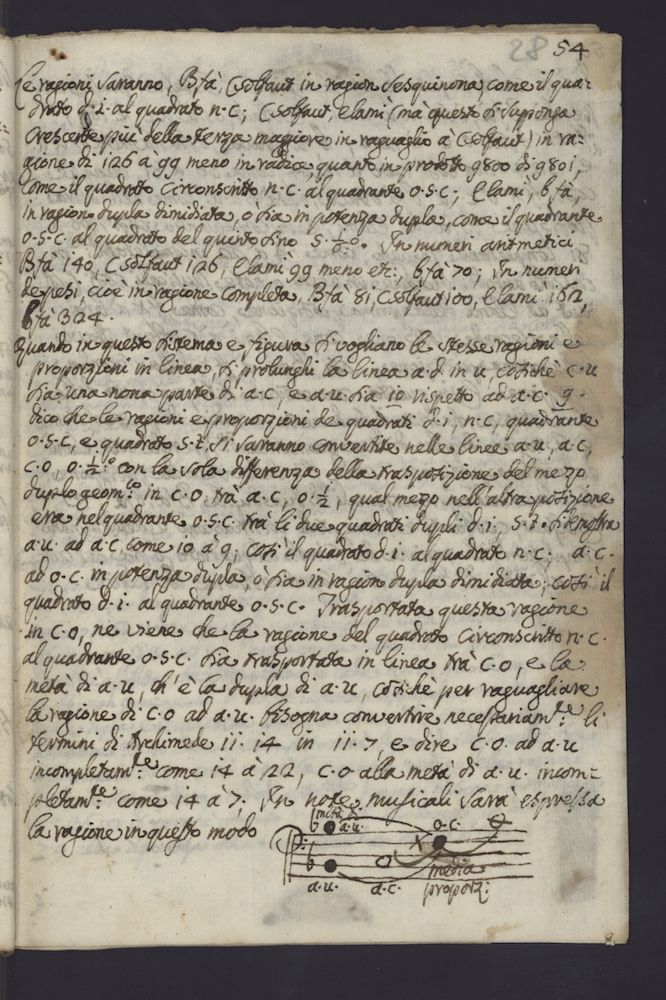 28 54
Le ragioni saranno, Bfà, Csolfaut in ragion sesquinona, come il qua-
drato d·i· al quadrato n·c; Csolfaut, Elami (mà questo si suponga
Crescente più della terza maggiore in raguaglio à Csolfaut) in ra-
gione di 126 a 99 meno in radice, quanto in prodotto 9800 di 9801,
come il quadrato circonscritto n·c· al quadrante o·s·c·; Elami, bfà,
in ragion dupla dimidiata, ò sia in potenza dupla, come il quadrante
o·s·c· al quadrato del quinto sino s·½·o·. In numeri aritmetici
Bfà 140, Csolfaut 126, Elami 99 meno etc:, bfà 70; In numeri
de pesi, cioè in ragione completa, Bfà 81, Csolfaut 100, Elami 162,
bfà 324.
Quando in questo sistema e figura si vogliano le stesse ragioni e
proporzioni in linea, si prolunghi la linea a·d· in u cosichè c·u
sia una nona parte di a·c, e a·u· sia 10 rispetto ad a·c· 9·
dico che le ragioni e proporzioni de quadrati d·i, n·c, quadrante
o·s·c, e quadrato s·z, si saranno convertite nelle linee a·u, a·c,
c·o, o·½·o con la sola differenza della trasposizione del mezo
duplo geom:co in c·o trà a·c, o·½, qual mezo nell'altra posizione
era nel quadrante o·s·c· trà li due quadrati dupli d·i, s·z· si demostra
a·u· ad a·c, come 10 à 9; così il quadrato d·i· al quadrato n·c; a·c·
ad o·c· in potenza dupla, ò sia in ragion dupla dimidiata; così il
quadrato d·i· al quadrante o·s·c· Trasportata questa ragione
in c·o, ne viene che la ragione del quadrato circonscritto n·c·
al quadrante o·s·c· sia trasportata in linea trà c·o, e la
metà di a·u, ch'è la dupla di a·u, cosichè per raguagliare
la ragione di c·o ad a·u· bisogna convertire necessariam:te li
termini di Archimede 11·14 in 11·7, e dire c·o· ad a·u
incompletam:te come 14 à 22, c·o alla metà di a·u· incom-
pletam:te come 14 à 7; In note musicali sarà espressa
la ragione in questo modo
metà di
a·u· o·c·
media
a·u· a·c· proporz: